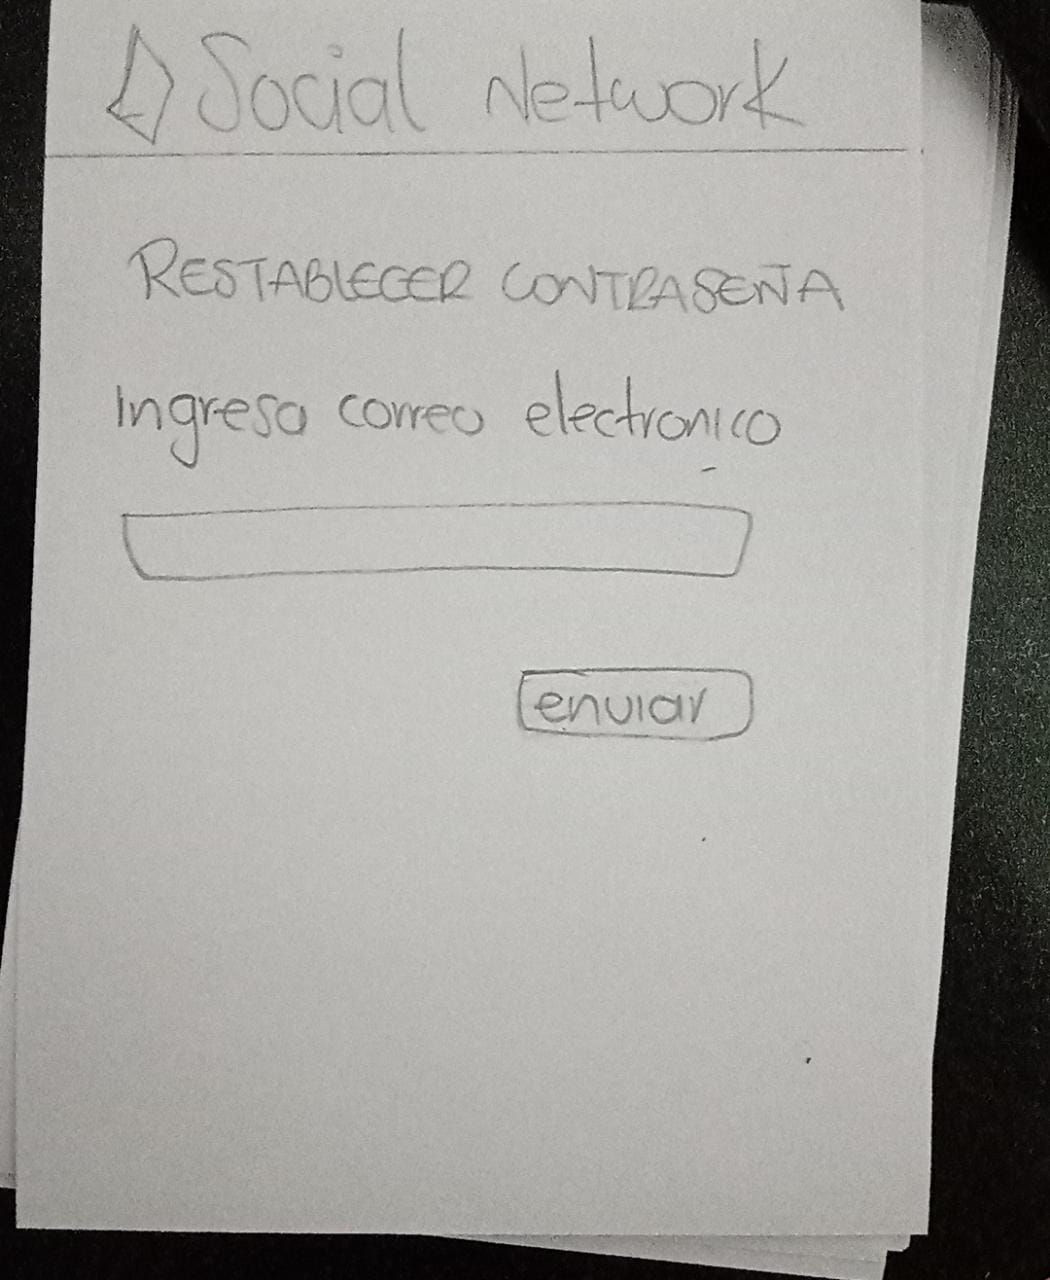 Social Network
RESTABLECER CONTRASEÑA
Ingresa correo electronico
enviar